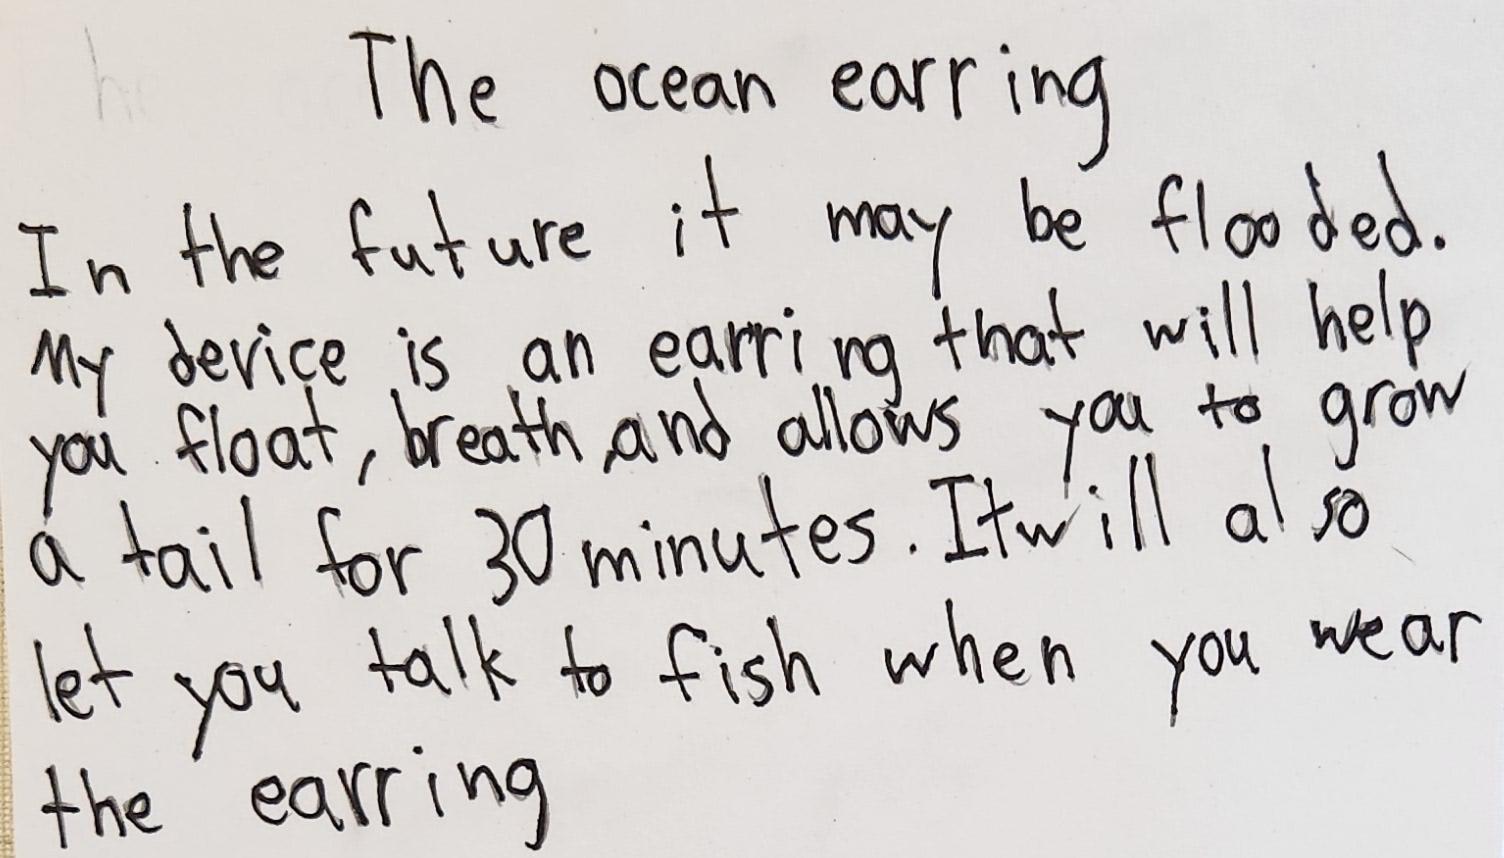 The ocean earring
In the future it may be flooded.
My device is an earring that will help
you float, breath, and allows you to grow
a tail for 30 minutes. It will also
let you talk to fish when you wear
the earring